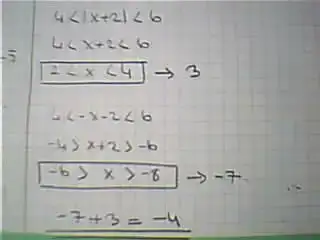 4<|x+2|<6
4<x+2<6
2<x<4 → 3
4<-x-2<6
-4>x+2>-6
-6> x >-8 → -7
-7+3=-4